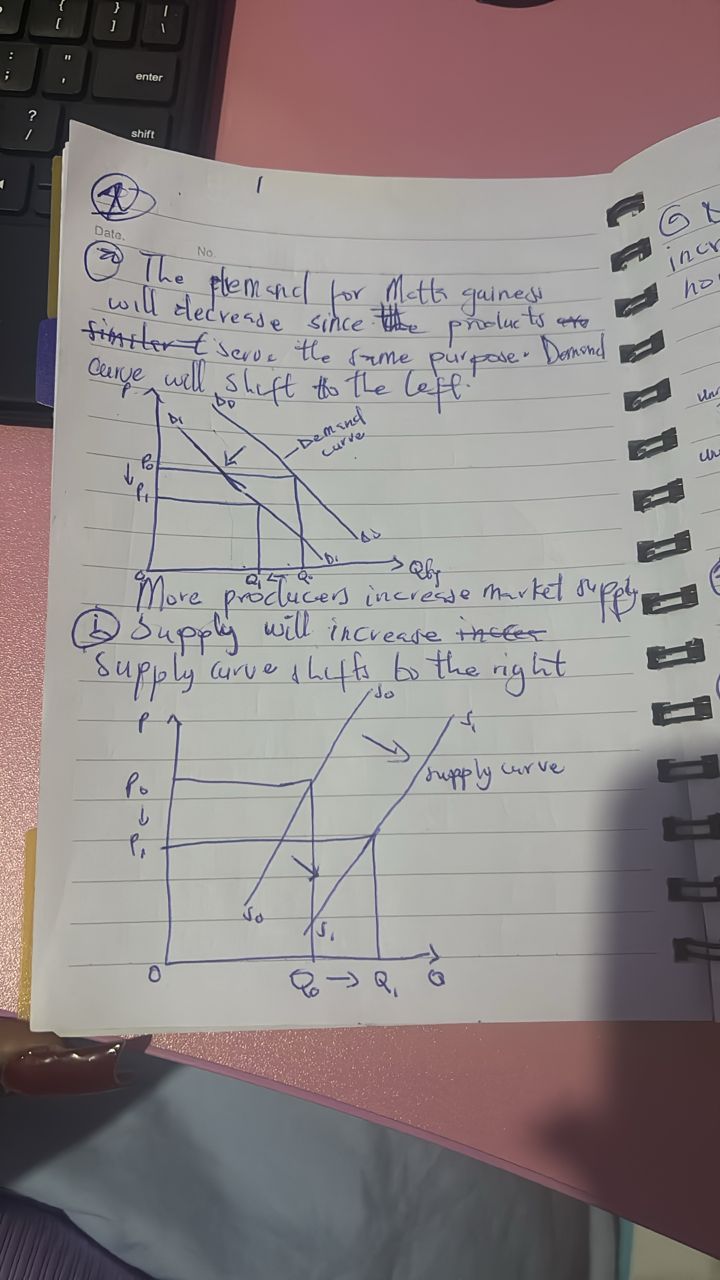 {
[
}
]
|
\
:
;
"
,
enter
?
/
shift
1
Date.
No.
(a) The Demand for Malta gainess
will decrease since the products are
similar t serve the same purpose. Demand
curve will shift to the left.
P
D1
D0
Demand
curve
P0
↓
P1
D0
D1
0
Q1
Q0
Qty
More producers increase market supply
(b) Supply will increase
Supply curve shifts to the right
P
S0
S1
supply curve
P0
↓
P1
S0
S1
0
Q0 → Q1
Q
G
incr